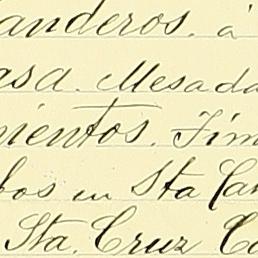 anderos. á
asa. Mesada
mientos. Tim
bos en Sta Car
Sta. Cruz Ca